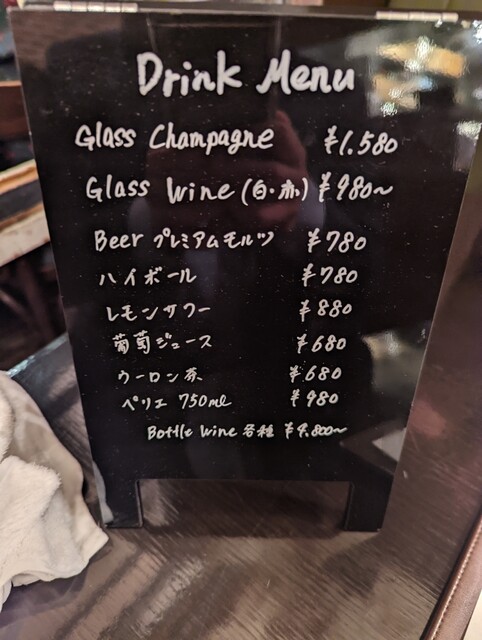 Drink Menu
Glass Champagne ¥1.580
Glass Wine (白・赤) ¥980~
Beer プレミアムモルツ ¥780
ハイボール ¥780
レモンサワー ¥880
葡萄ジュース ¥680
ウーロン茶 ¥680
ペリエ 750ml ¥980
Bottle Wine 各種 ¥4.800~